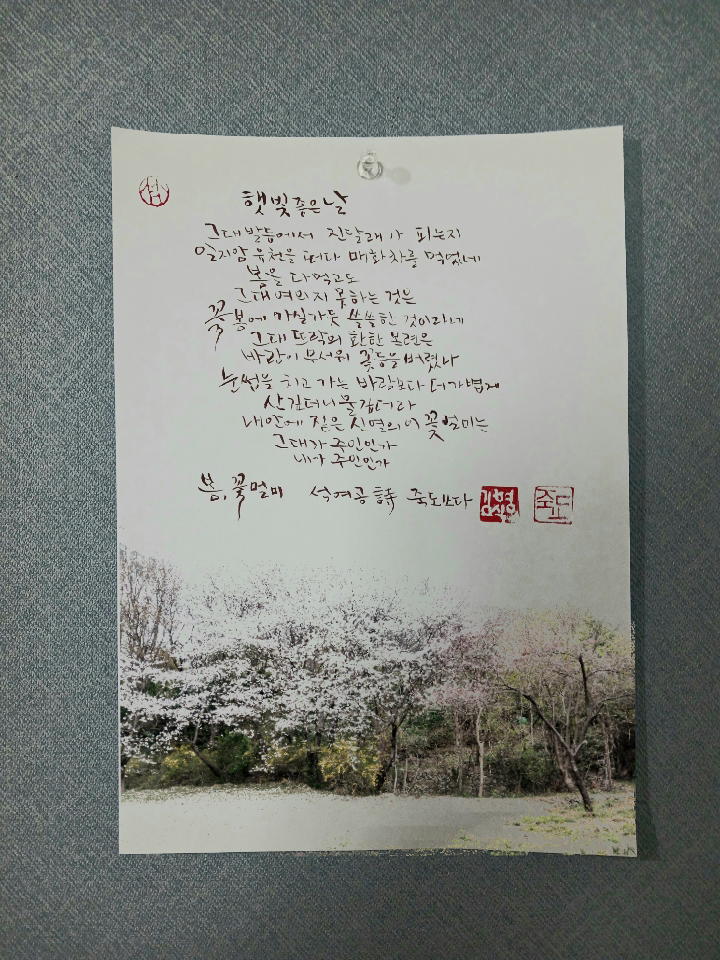 햇빛 좋은 날
그대 발등에서 진달래가 피는지
일지암 유천을 떠다 매화차를 먹었네
봄을 다 먹고도
그대 여의지 못하는 것은
꽃봄에 가실가듯 쓸쓸한 것이라네
그대 뜨락의 환한 목련은
바람이 무서워 꽃등을 버렸으나
눈썹을 치고 가는 바람보다 더 가볍게
산길더니 물길더라
내 안에 짚은 신열의 이 꽃멀미는
그대가 주인인가
내가 주인인가
봄, 꽃멀미 석여공 詩 죽도쓰다
죽도